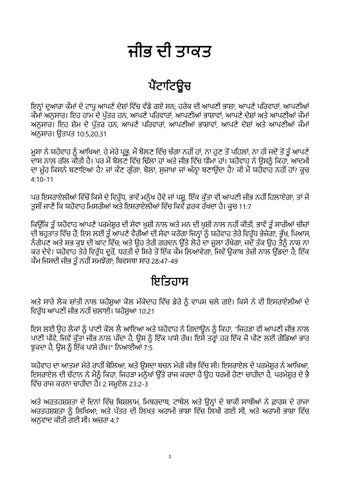 ਜੀਭ ਦੀ ਤਾਕਤ
ਪੈਂਟਾਟਿਊਚ
ਇਨ੍ਹਾਂ ਦੁਆਰਾ ਕੌਮਾਂ ਦੇ ਟਾਪੂ ਆਪਣੇ ਦੇਸ਼ਾਂ ਵਿੱਚ ਵੰਡੇ ਗਏ ਸਨ; ਹਰੇਕ ਦੀ ਆਪਣੀ ਭਾਸ਼ਾ, ਆਪਣੇ ਪਰਿਵਾਰਾਂ, ਆਪਣੀਆਂ
ਕੌਮਾਂ ਅਨੁਸਾਰ। ਇਹ ਹਾਮ ਦੇ ਪੁੱਤਰ ਹਨ, ਆਪਣੇ ਪਰਿਵਾਰਾਂ, ਆਪਣੀਆਂ ਭਾਸ਼ਾਵਾਂ, ਆਪਣੇ ਦੇਸ਼ਾਂ ਅਤੇ ਆਪਣੀਆਂ ਕੌਮਾਂ
ਅਨੁਸਾਰ। ਇਹ ਸ਼ੇਮ ਦੇ ਪੁੱਤਰ ਹਨ, ਆਪਣੇ ਪਰਿਵਾਰਾਂ, ਆਪਣੀਆਂ ਭਾਸ਼ਾਵਾਂ, ਆਪਣੇ ਦੇਸ਼ਾਂ ਅਤੇ ਆਪਣੀਆਂ ਕੌਮਾਂ
ਅਨੁਸਾਰ। ਉਤਪਤ 10:5,20,31
ਮੂਸਾ ਨੇ ਯਹੋਵਾਹ ਨੂੰ ਆਖਿਆ, ਹੇ ਮੇਰੇ ਪ੍ਰਭੂ, ਮੈਂ ਬੋਲਣ ਵਿੱਚ ਚੰਗਾ ਨਹੀਂ ਹਾਂ, ਨਾ ਹੁਣ ਤੋਂ ਪਹਿਲਾਂ, ਨਾ ਹੀ ਜਦੋਂ ਤੋਂ ਤੂੰ ਆਪਣੇ
ਦਾਸ ਨਾਲ ਗੱਲ ਕੀਤੀ ਹੈ। ਪਰ ਮੈਂ ਬੋਲਣ ਵਿੱਚ ਢਿੱਲਾ ਹਾਂ ਅਤੇ ਜੀਭ ਵਿੱਚ ਧੀਮਾ ਹਾਂ। ਯਹੋਵਾਹ ਨੇ ਉਸਨੂੰ ਕਿਹਾ, ਆਦਮੀ
ਦਾ ਮੂੰਹ ਕਿਸਨੇ ਬਣਾਇਆ ਹੈ? ਜਾਂ ਕੌਣ ਗੂੰਗਾ, ਬੋਲਾ, ਸੁਜਾਖਾ ਜਾਂ ਅੰਨ੍ਹਾ ਬਣਾਉਂਦਾ ਹੈ? ਕੀ ਮੈਂ ਯਹੋਵਾਹ ਨਹੀਂ ਹਾਂ? ਕੂਚ
4:10-11
ਪਰ ਇਸਰਾਏਲੀਆਂ ਵਿੱਚੋਂ ਕਿਸੇ ਦੇ ਵਿਰੁੱਧ, ਭਾਵੇਂ ਮਨੁੱਖ ਹੋਵੇ ਜਾਂ ਪਸ਼ੂ, ਇੱਕ ਕੁੱਤਾ ਵੀ ਆਪਣੀ ਜੀਭ ਨਹੀਂ ਹਿਲਾਏਗਾ, ਤਾਂ ਜੋ
ਤੁਸੀਂ ਜਾਣੋ ਕਿ ਯਹੋਵਾਹ ਮਿਸਰੀਆਂ ਅਤੇ ਇਸਰਾਏਲੀਆਂ ਵਿੱਚ ਕਿਵੇਂ ਫ਼ਰਕ ਰੱਖਦਾ ਹੈ। ਕੂਚ 11:7
ਕਿਉਂਕਿ ਤੂੰ ਯਹੋਵਾਹ ਆਪਣੇ ਪਰਮੇਸ਼ੁਰ ਦੀ ਸੇਵਾ ਖੁਸ਼ੀ ਨਾਲ ਅਤੇ ਮਨ ਦੀ ਖੁਸ਼ੀ ਨਾਲ ਨਹੀਂ ਕੀਤੀ, ਭਾਵੇਂ ਤੂੰ ਸਾਰੀਆਂ ਚੀਜ਼ਾਂ
ਦੀ ਬਹੁਤਾਤ ਵਿੱਚ ਹੈਂ, ਇਸ ਲਈ ਤੂੰ ਆਪਣੇ ਵੈਰੀਆਂ ਦੀ ਸੇਵਾ ਕਰੇਂਗਾ ਜਿਨ੍ਹਾਂ ਨੂੰ ਯਹੋਵਾਹ ਤੇਰੇ ਵਿਰੁੱਧ ਭੇਜੇਗਾ, ਭੁੱਖ, ਪਿਆਸ,
ਨੰਗੇਪਣ ਅਤੇ ਸਭ ਕੁਝ ਦੀ ਘਾਟ ਵਿੱਚ; ਅਤੇ ਉਹ ਤੇਰੀ ਗਰਦਨ ਉੱਤੇ ਲੋਹੇ ਦਾ ਜੂਲਾ ਰੱਖੇਗਾ, ਜਦੋਂ ਤੱਕ ਉਹ ਤੈਨੂੰ ਨਾਸ਼ ਨਾ
ਕਰ ਦੇਵੇ। ਯਹੋਵਾਹ ਤੇਰੇ ਵਿਰੁੱਧ ਦੂਰੋਂ, ਧਰਤੀ ਦੇ ਸਿਰੇ ਤੋਂ ਇੱਕ ਕੌਮ ਲਿਆਵੇਗਾ, ਜਿਵੇਂ ਉਕਾਬ ਤੇਜ਼ੀ ਨਾਲ ਉੱਡਦਾ ਹੈ; ਇੱਕ
ਕੌਮ ਜਿਸਦੀ ਜੀਭ ਤੂੰ ਨਹੀਂ ਸਮਝੇਂਗਾ; ਬਿਵਸਥਾ ਸਾਰ 28:47-49
ਇਤਿਹਾਸ
ਅਤੇ ਸਾਰੇ ਲੋਕ ਸ਼ਾਂਤੀ ਨਾਲ ਯਹੋਸ਼ੁਆ ਕੋਲ ਮੱਕੇਦਾਹ ਵਿੱਚ ਡੇਰੇ ਨੂੰ ਵਾਪਸ ਚਲੇ ਗਏ। ਕਿਸੇ ਨੇ ਵੀ ਇਸਰਾਏਲੀਆਂ ਦੇ
ਵਿਰੁੱਧ ਆਪਣੀ ਜੀਭ ਨਹੀਂ ਚਲਾਈ। ਯਹੋਸ਼ੁਆ 10:21
ਇਸ ਲਈ ਉਹ ਲੋਕਾਂ ਨੂੰ ਪਾਣੀ ਕੋਲ ਲੈ ਆਇਆ ਅਤੇ ਯਹੋਵਾਹ ਨੇ ਗਿਦਾਊਨ ਨੂੰ ਕਿਹਾ, "ਜਿਹੜਾ ਵੀ ਆਪਣੀ ਜੀਭ ਨਾਲ
ਪਾਣੀ ਪੀਵੇ, ਜਿਵੇਂ ਕੁੱਤਾ ਜੀਭ ਨਾਲ ਪੀਂਦਾ ਹੈ, ਉਸ ਨੂੰ ਇੱਕ ਪਾਸੇ ਰੱਖ। ਇਸੇ ਤਰ੍ਹਾਂ ਹਰ ਇੱਕ ਜੋ ਪੀਣ ਲਈ ਗੋਡਿਆਂ ਭਾਰ
ਝੁਕਦਾ ਹੈ, ਉਸ ਨੂੰ ਇੱਕ ਪਾਸੇ ਰੱਖ।" ਨਿਆਈਆਂ 7:5
ਯਹੋਵਾਹ ਦਾ ਆਤਮਾ ਮੇਰੇ ਰਾਹੀਂ ਬੋਲਿਆ, ਅਤੇ ਉਸਦਾ ਬਚਨ ਮੇਰੀ ਜੀਭ ਵਿੱਚ ਸੀ। ਇਸਰਾਏਲ ਦੇ ਪਰਮੇਸ਼ੁਰ ਨੇ ਆਖਿਆ,
ਇਸਰਾਏਲ ਦੀ ਚੱਟਾਨ ਨੇ ਮੈਨੂੰ ਕਿਹਾ, ਜਿਹੜਾ ਮਨੁੱਖਾਂ ਉੱਤੇ ਰਾਜ ਕਰਦਾ ਹੈ ਉਹ ਧਰਮੀ ਹੋਣਾ ਚਾਹੀਦਾ ਹੈ, ਪਰਮੇਸ਼ੁਰ ਦੇ ਭੈ
ਵਿੱਚ ਰਾਜ ਕਰਨਾ ਚਾਹੀਦਾ ਹੈ। 2 ਸਮੂਏਲ 23:2-3
ਅਤੇ ਅਰਤਹਸ਼ਸ਼ਤਾ ਦੇ ਦਿਨਾਂ ਵਿੱਚ ਬਿਸ਼ਲਾਮ, ਮਿਥਰਦਾਥ, ਟਾਬੇਲ ਅਤੇ ਉਨ੍ਹਾਂ ਦੇ ਬਾਕੀ ਸਾਥੀਆਂ ਨੇ ਫ਼ਾਰਸ ਦੇ ਰਾਜਾ
ਅਰਤਹਸ਼ਸ਼ਤਾ ਨੂੰ ਲਿਖਿਆ; ਅਤੇ ਪੱਤਰ ਦੀ ਲਿਖਤ ਅਰਾਮੀ ਭਾਸ਼ਾ ਵਿੱਚ ਲਿਖੀ ਗਈ ਸੀ, ਅਤੇ ਅਰਾਮੀ ਭਾਸ਼ਾ ਵਿੱਚ
ਅਨੁਵਾਦ ਕੀਤੀ ਗਈ ਸੀ। ਅਜ਼ਰਾ 4:7
1